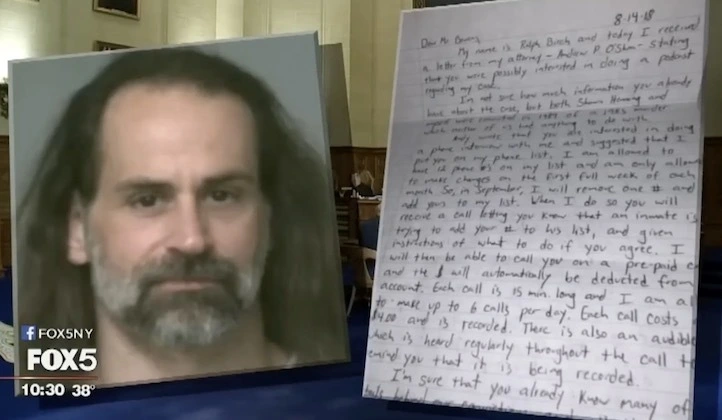 8-14-18
Dear Mr Bevans,
My name is Ralph Birch and today I received
a letter from my attorney - Andrew P. O'Shea - stating
that you were possibly interested in doing a podcast
regarding my case.
I'm not sure how much information you already
have about the case, but both Shawn Henning and
myself were convicted in 1989 of a 1985 murder
which neither of us had anything to do with.
wrote that you are interested in doing
a phone interview with me and suggested that I
put you on my phone list. I am allowed to
have 12 phone #'s on my list and am only allowe
to make changes on the first full week of each
month. So, in September, I will remove one # and
add yours to my list. When I do so you will
receive a call letting you know that an inmate is
trying to add your # to his list, and given
instructions of what to do if you agree. I
will then be able to call you on a pre-paid
and the $ will automatically be deducted from
account. Each call is 15 min. long and I am al
to make up to 6 calls per day. Each call costs
$4.00 and is recorded. There is also an audible
which is heard regularly throughout the call t
remind you that it is being recorded.
I'm sure that you already know many of
f FOX5NY
FOX5
10:30 38°